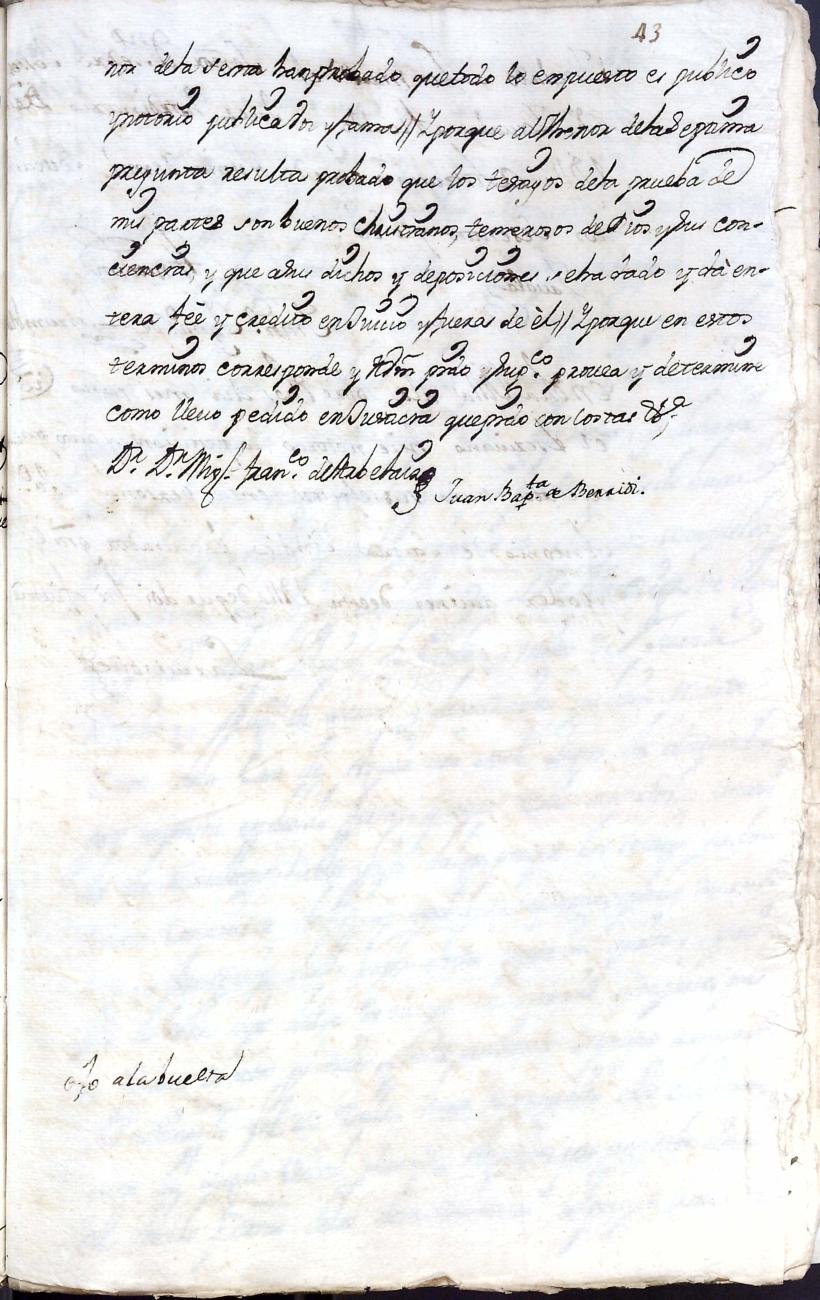 43
nor dela sexta han probado que todo lo expuesto es publico
ynotorio publica voz yfama // Yporque al thenor dela Septima
pregunta resulta probado que los testigos dela prueba de
mis partes son buenos christianos, temerosos de Dios ysus con-
ciencias, y que asus dichos y deposiciones se ha dado y dà en-
tera fèe y credito en Juicio yfuera de èl // Yporque en estos
terminos corresponde y A Vm pido ysup.co provea y determine
como llevo pedido en Justicia que pido con costas &ª
Dr. Dn Mig.l Fran.co de
Juan Bap.ta de Berridi.
ojo a la buelta